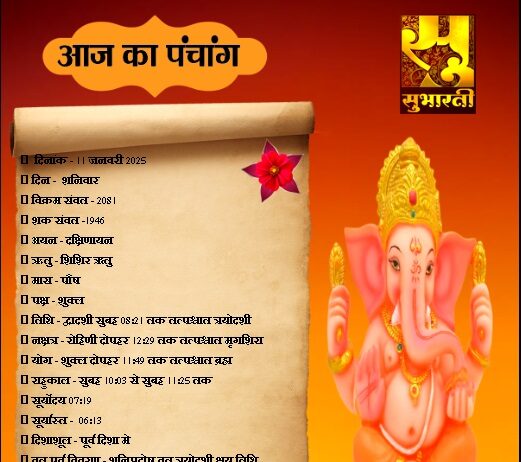 आज का पंचांग
सुभारती
दिनांक - 11 जनवरी 2025
दिन - शनिवार
विक्रम संवत - 2081
शक संवत -1946
अयन - दक्षिणायन
ऋतु - शिशिर ऋतु
मास - पौष
पक्ष - शुक्ल
तिथि - द्वादशी सुबह 08:21 तक तत्पश्चात त्रयोदशी
नक्षत्र - रोहिणी दोपहर 12:29 तक तत्पश्चात मृगशिरा
योग - शुक्ल दोपहर 11:49 तक तत्पश्चात ब्रह्म
राहुकाल - सुबह 10:03 से सुबह 11:25 तक
सूर्योदय 07:19
सूर्यास्त - 06:13
दिशाशूल - पूर्व दिशा मे
व्रत पर्व विवरण - शनिप्रदोष व्रत त्रयोदशी क्षय तिथि